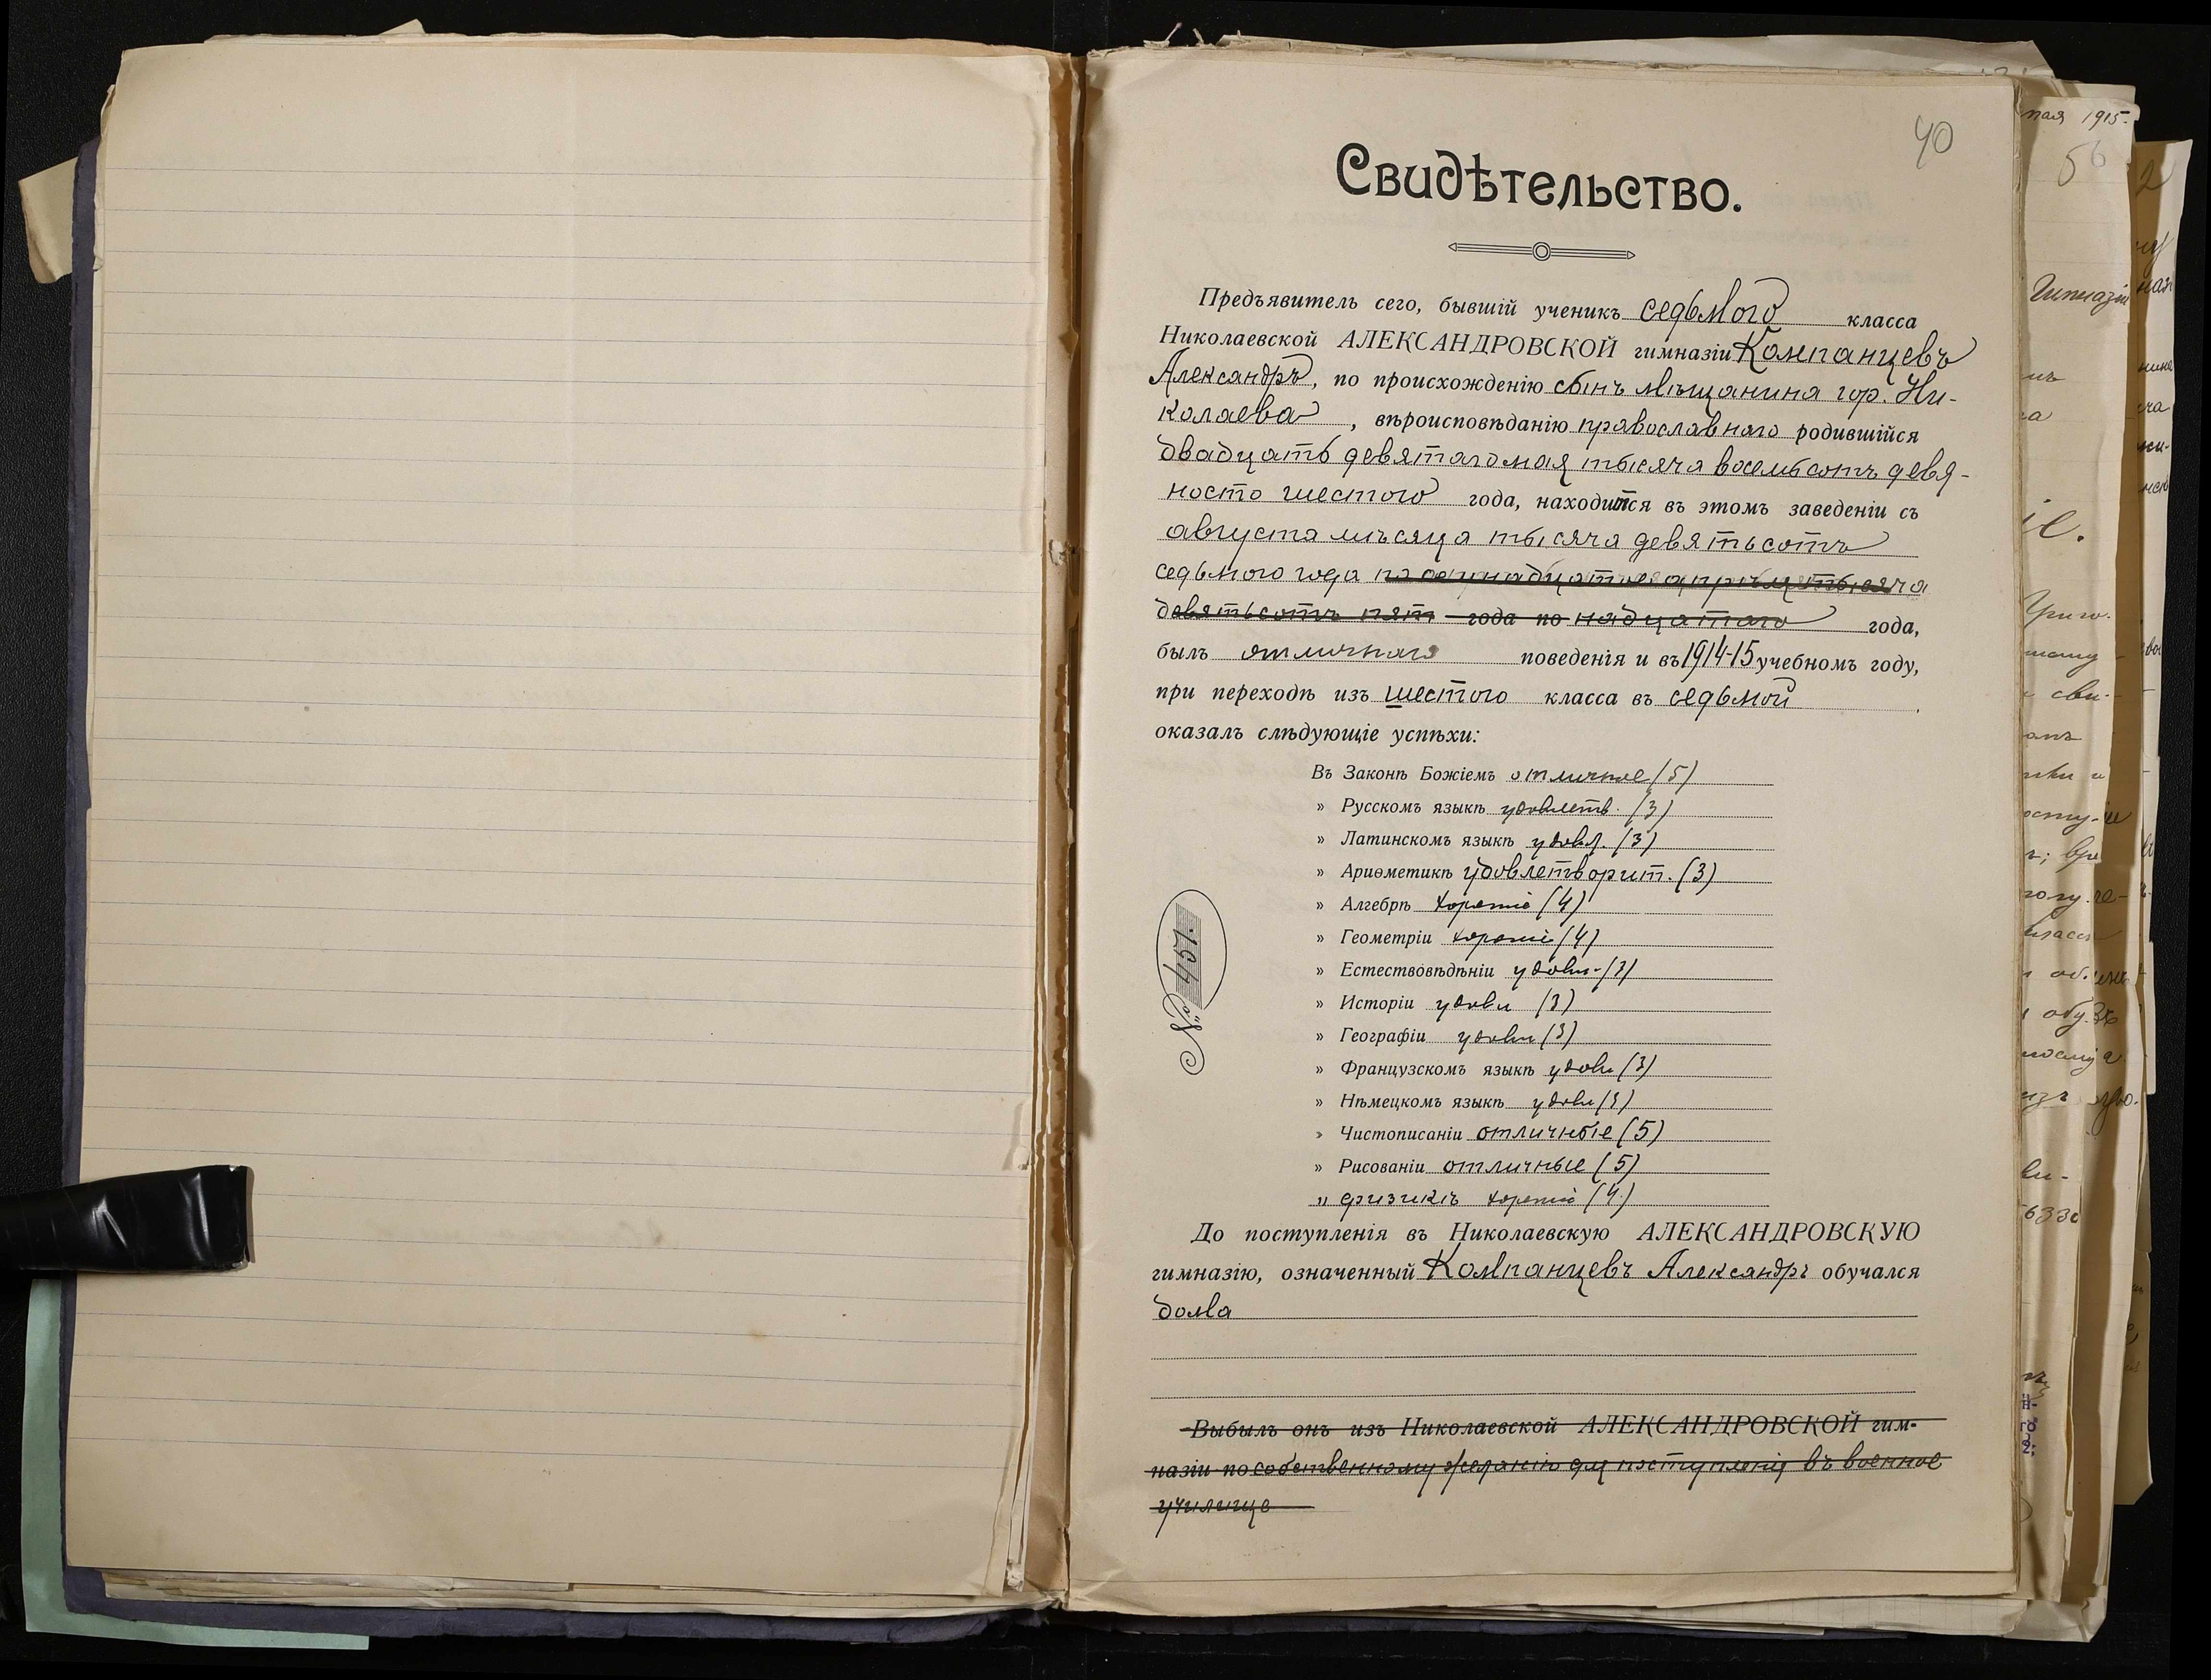 40
Свидѣтельство.
Предъявитель сего, бывшій ученикъ седьмого класса
Николаевской АЛЕКСАНДРОВСКОЙ гимназіи Компанцевъ
Александръ, по происхожденію сынъ мѣщанина гор. Ни-
колаева, вѣроисповѣданію православнаго родившійся
двадцать девятаго мая тысяча восемьсотъ девя-
носто шестого года, находится въ этомъ заведеніи съ
августа мѣсяца тысяча девятьсотъ
седьмого года по семнадцатое апрѣля тысяча
девятьсотъ пят года по надцатаго года,
былъ отличнаго поведенія и въ 1914-15 учебномъ году,
при переходѣ изъ шестого класса въ седьмой
оказалъ слѣдующіе успѣхи:
Въ Законѣ Божіемъ отличные (5)
» Русскомъ языкѣ удовлетв. (3)
» Латинскомъ языкѣ удовл. (3)
» Ариѳметикѣ удовлетворит. (3)
» Алгебрѣ хорошіе (4)
» Геометріи хорошіе (4)
» Естествовѣдѣніи удовл. (3)
» Исторіи удовл (3)
» Географіи удовл (3)
» Французскомъ языкѣ удовл (3)
» Нѣмецкомъ языкѣ удовл (3)
» Чистописаніи отличные (5)
» Рисованіи отличные (5)
" физикѣ хорошіе (4)
№ 451.
До поступленія въ Николаевскую АЛЕКСАНДРОВСКУЮ
гимназію, означенный Компанцевъ Александръ обучался
дома
Выбылъ онъ изъ Николаевской АЛЕКСАНДРОВСКОЙ гим-
назіи по собственному желанію для поступленія въ военное
училище
мая 1915.
56
2
Гимназіи